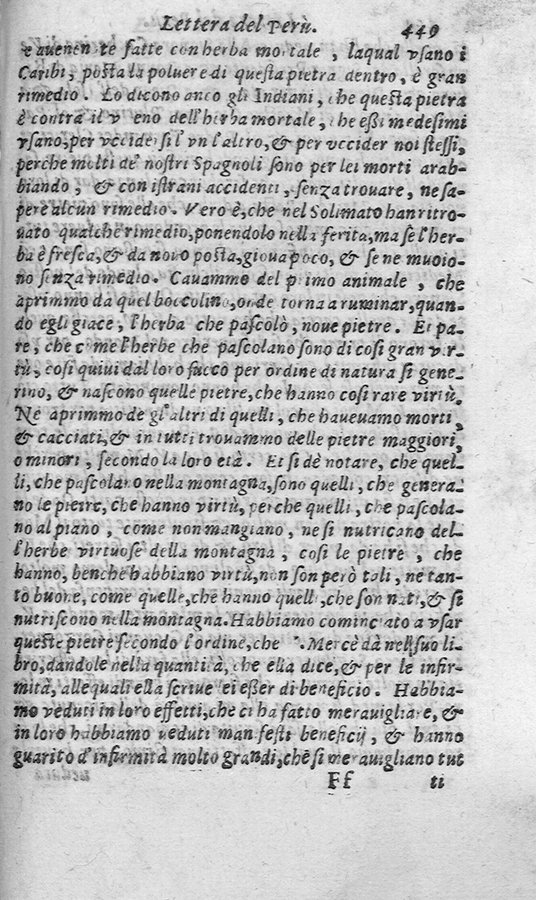 Lettera del Perù. 449
e auenen te fatte con herba mortale , laqual vsano i
Caribi, posta la poluere di questa pietra dentro, è gran
rimedio . Lo dicono anco gli Indiani, che questa pietra
è contra il v eno dell'herba mortale, che eßi medesimi
vsano, per vccidersi l'vn l'altro, & per vccider noi stessi,
perche molti de' nostri Spagnoli sono per lei morti arab-
biando , & con istrani accidenti, senza trouare, ne sa-
pere alcun rimedio. Vero è, che nel Solimato han ritro-
uato qualche rimedio, ponendolo nella ferita, ma se l'her-
ba è fresca, & da nouo posta, gioua poco, & se ne muoio-
no senza rimedio. Cauammo del primo animale , che
aprimmo da quel boccolino, onde torna a ruminar, quan-
do egli giace , l'herba che pascolò, noue pietre. Et pa-
re, che come l'herbe che pascolano sono di cosi gran vir-
tù, cosi quiui dal loro succo per ordine di natura si gene-
rino, & nascono quelle pietre, che hanno cosi rare virtù.
Ne aprimmo de gl'altri di quelli, che haueuamo morti,
& cacciati, & in tutti trouammo delle pietre maggiori,
o minori , secondo la loro età. Et si dè notare, che quel-
li, che pascolano nella montagna, sono quelli, che genera-
no le pietre, che hanno virtù, perche quelli, che pascola-
no al piano , come non mangiano, ne si nutricano del-
l'herbe virtuose della montagna , cosi le pietre , che
hanno, benche habbiano virtù, non son però tali, ne tan-
to buone, come quelle, che hanno quelli, che son nati, & si
nutriscono nella montagna. Habbiamo cominciato a vsar
queste pietre secondo l'ordine, che . Mercè dà nel suo li-
bro, dandole nella quantità, che ella dice, & per le infir-
mità, alle quali ella scriue lei eßer di beneficio. Habbia-
mo veduti in loro effetti, che ci ha fatto merauigliare, &
in loro habbiamo veduti manifesti beneficij , & hanno
guarito d'infirmità molto grandi, che si merauigliano tut
Ff ti